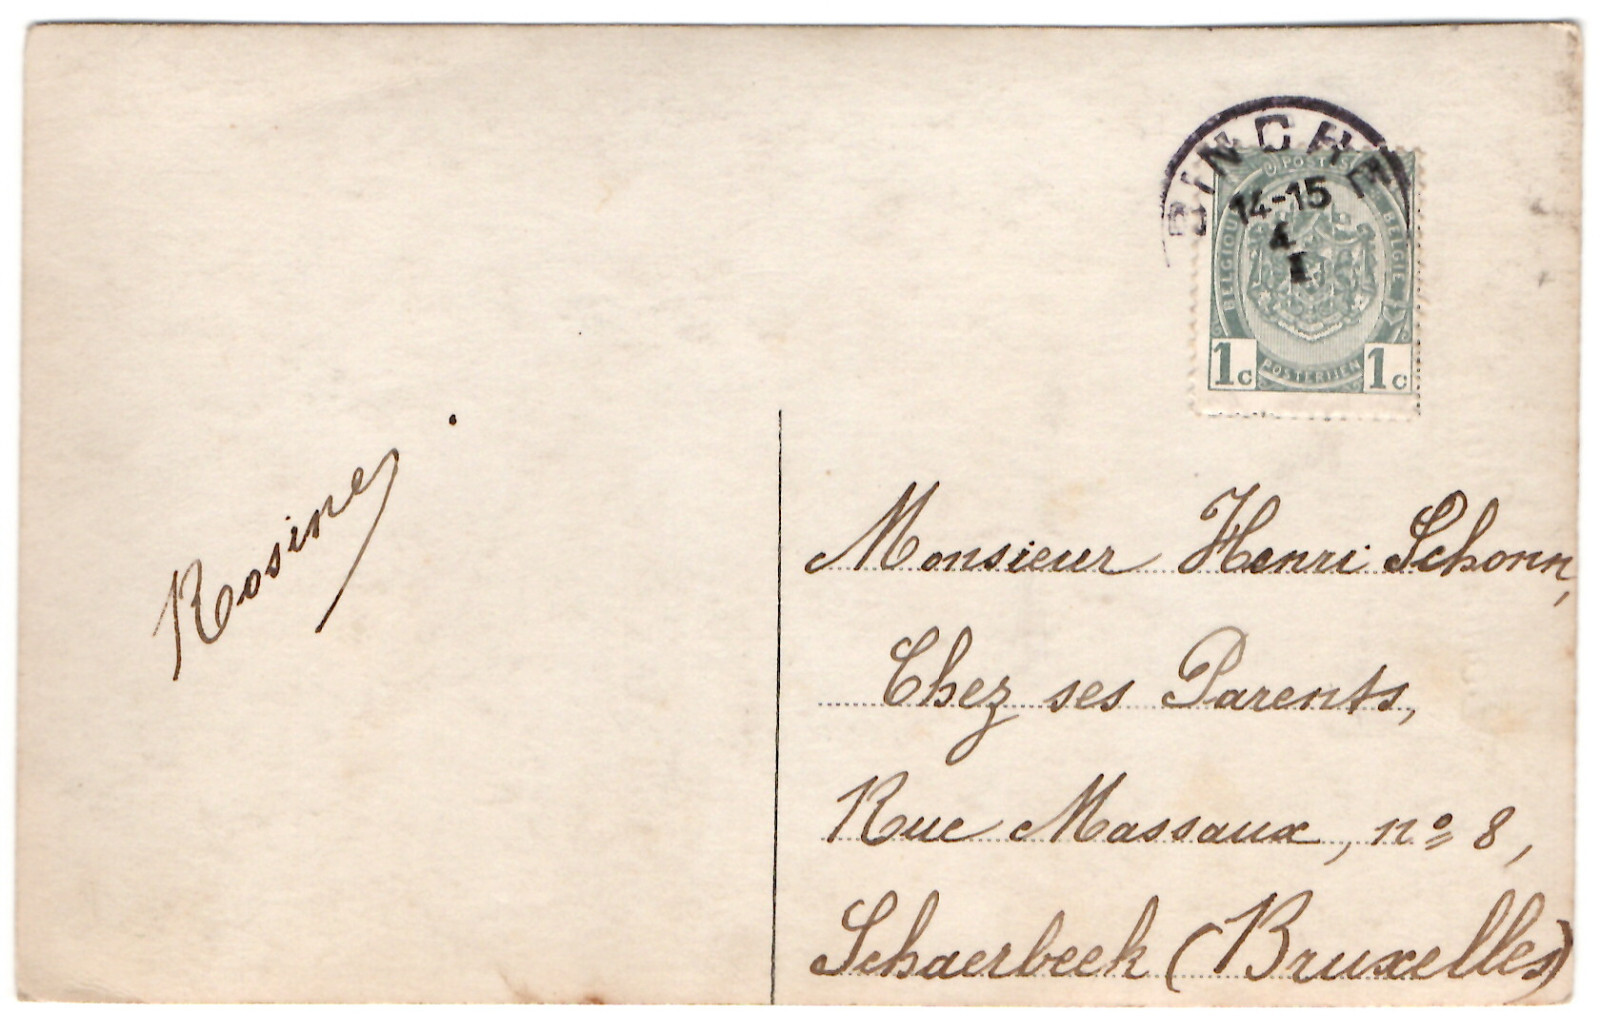 BINCHE
14-15
4
I
POSTES
BELGIQUE
BELGIE
POSTERIJEN
1c 1c
Rosine
Monsieur Henri Schonn,
Chez ses Parents,
Rue Massaux, no 8,
Schaerbeek (Bruxelles)